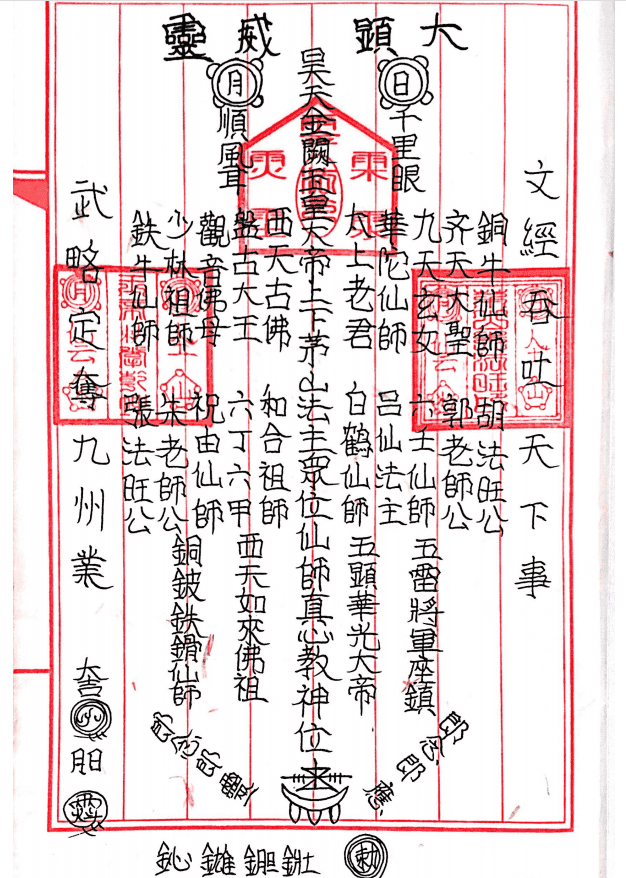 大顕威靈
文經吞吐天下事
銅牛仙師 胡法旺公
齐天大聖 郭老師公
九天玄女 六壬仙師 五雷將軍座鎮
日 千里眼 華陀仙師 吕仙法主
太上老君 白鶴仙師 五顕華光大帝
昊天金闕玉皇大帝上下茅山法主眾位仙師真心教神位
西天古佛 和合祖師
盤古大王 六丁六甲 西天如來佛祖
月 順風耳 觀音佛母 祝由仙師
少林祖師 朱老師公 銅鈹鉄鎖仙師
鉄牛仙師 張法旺公
武略定奪九州業
勅